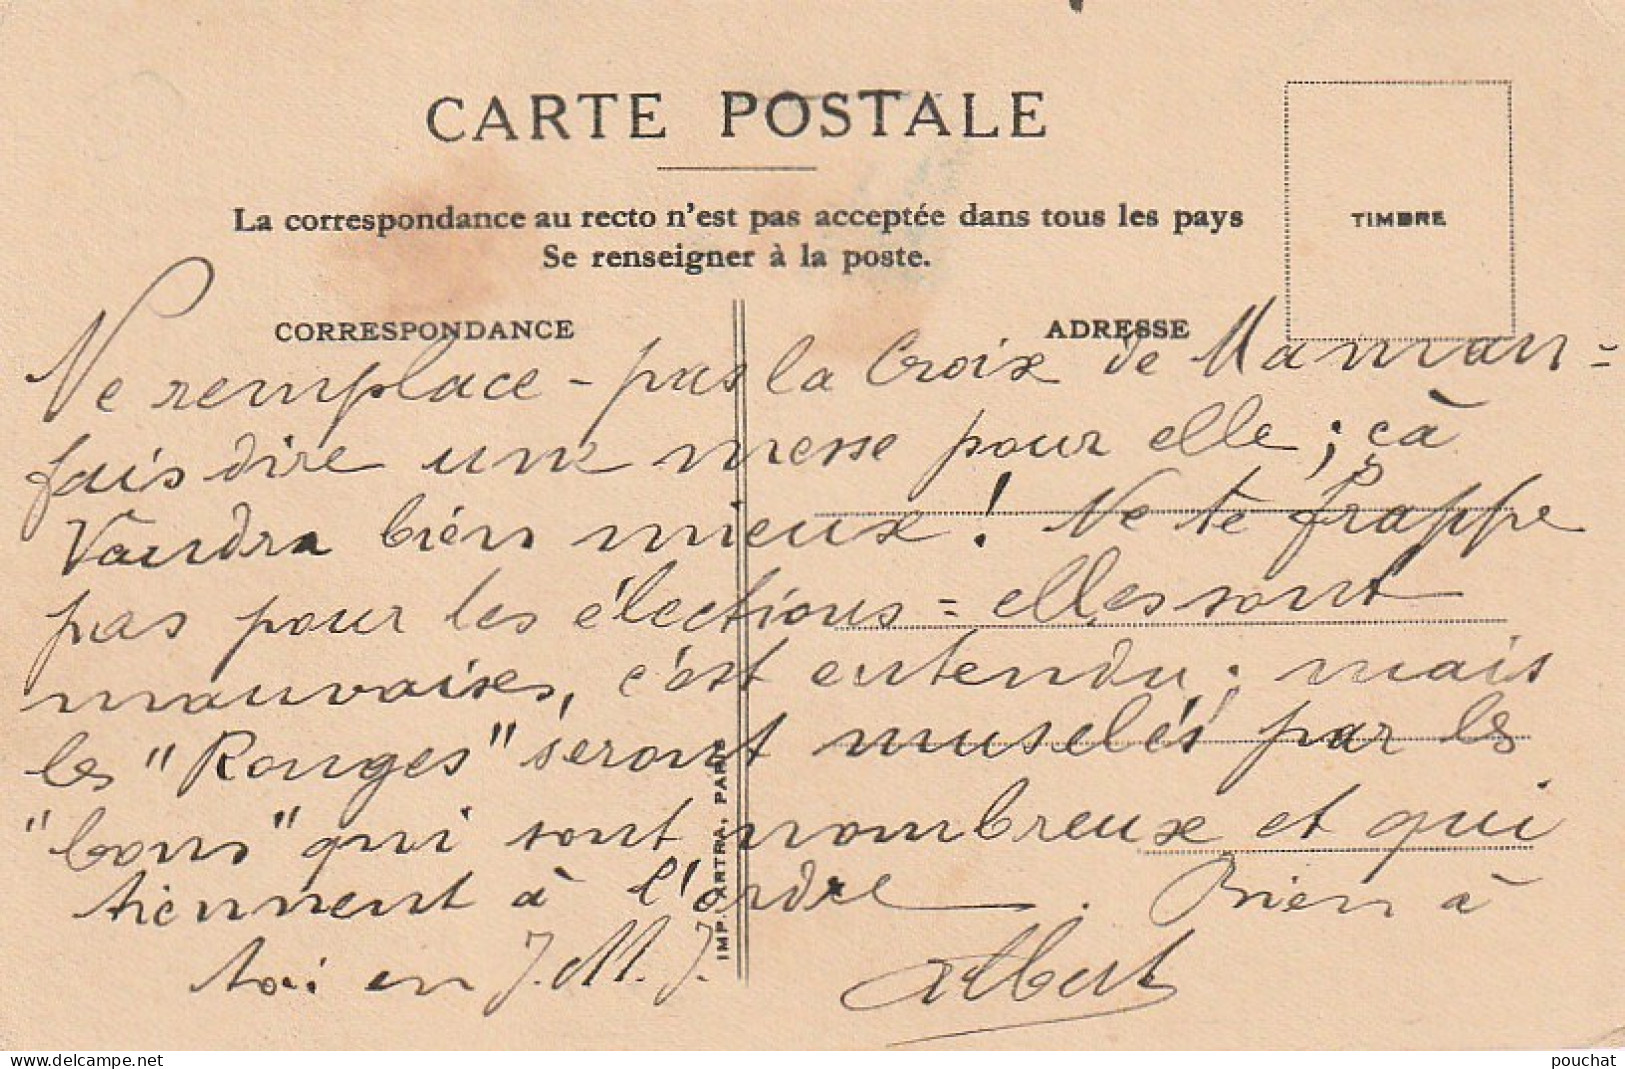 CARTE POSTALE
La correspondance au recto n'est pas acceptée dans tous les pays
Se renseigner à la poste.
TIMBRE
CORRESPONDANCE
ADRESSE
Ne remplace - pas la Croix de Maman =
fais dire une messe pour elle ; çà
Vaudra bien mieux ! Ne te frappe
pas pour les élections = elles sont
mauvaises, c'est entendu ; mais
les "Rouges" seront muselés par les
"bons" qui sont nombreux et qui
tiennent à l'ordre. Bien à
toi en J.M.J.
Albert
IMP. ARTRA, PARIS
www.delcampe.net
pouchat